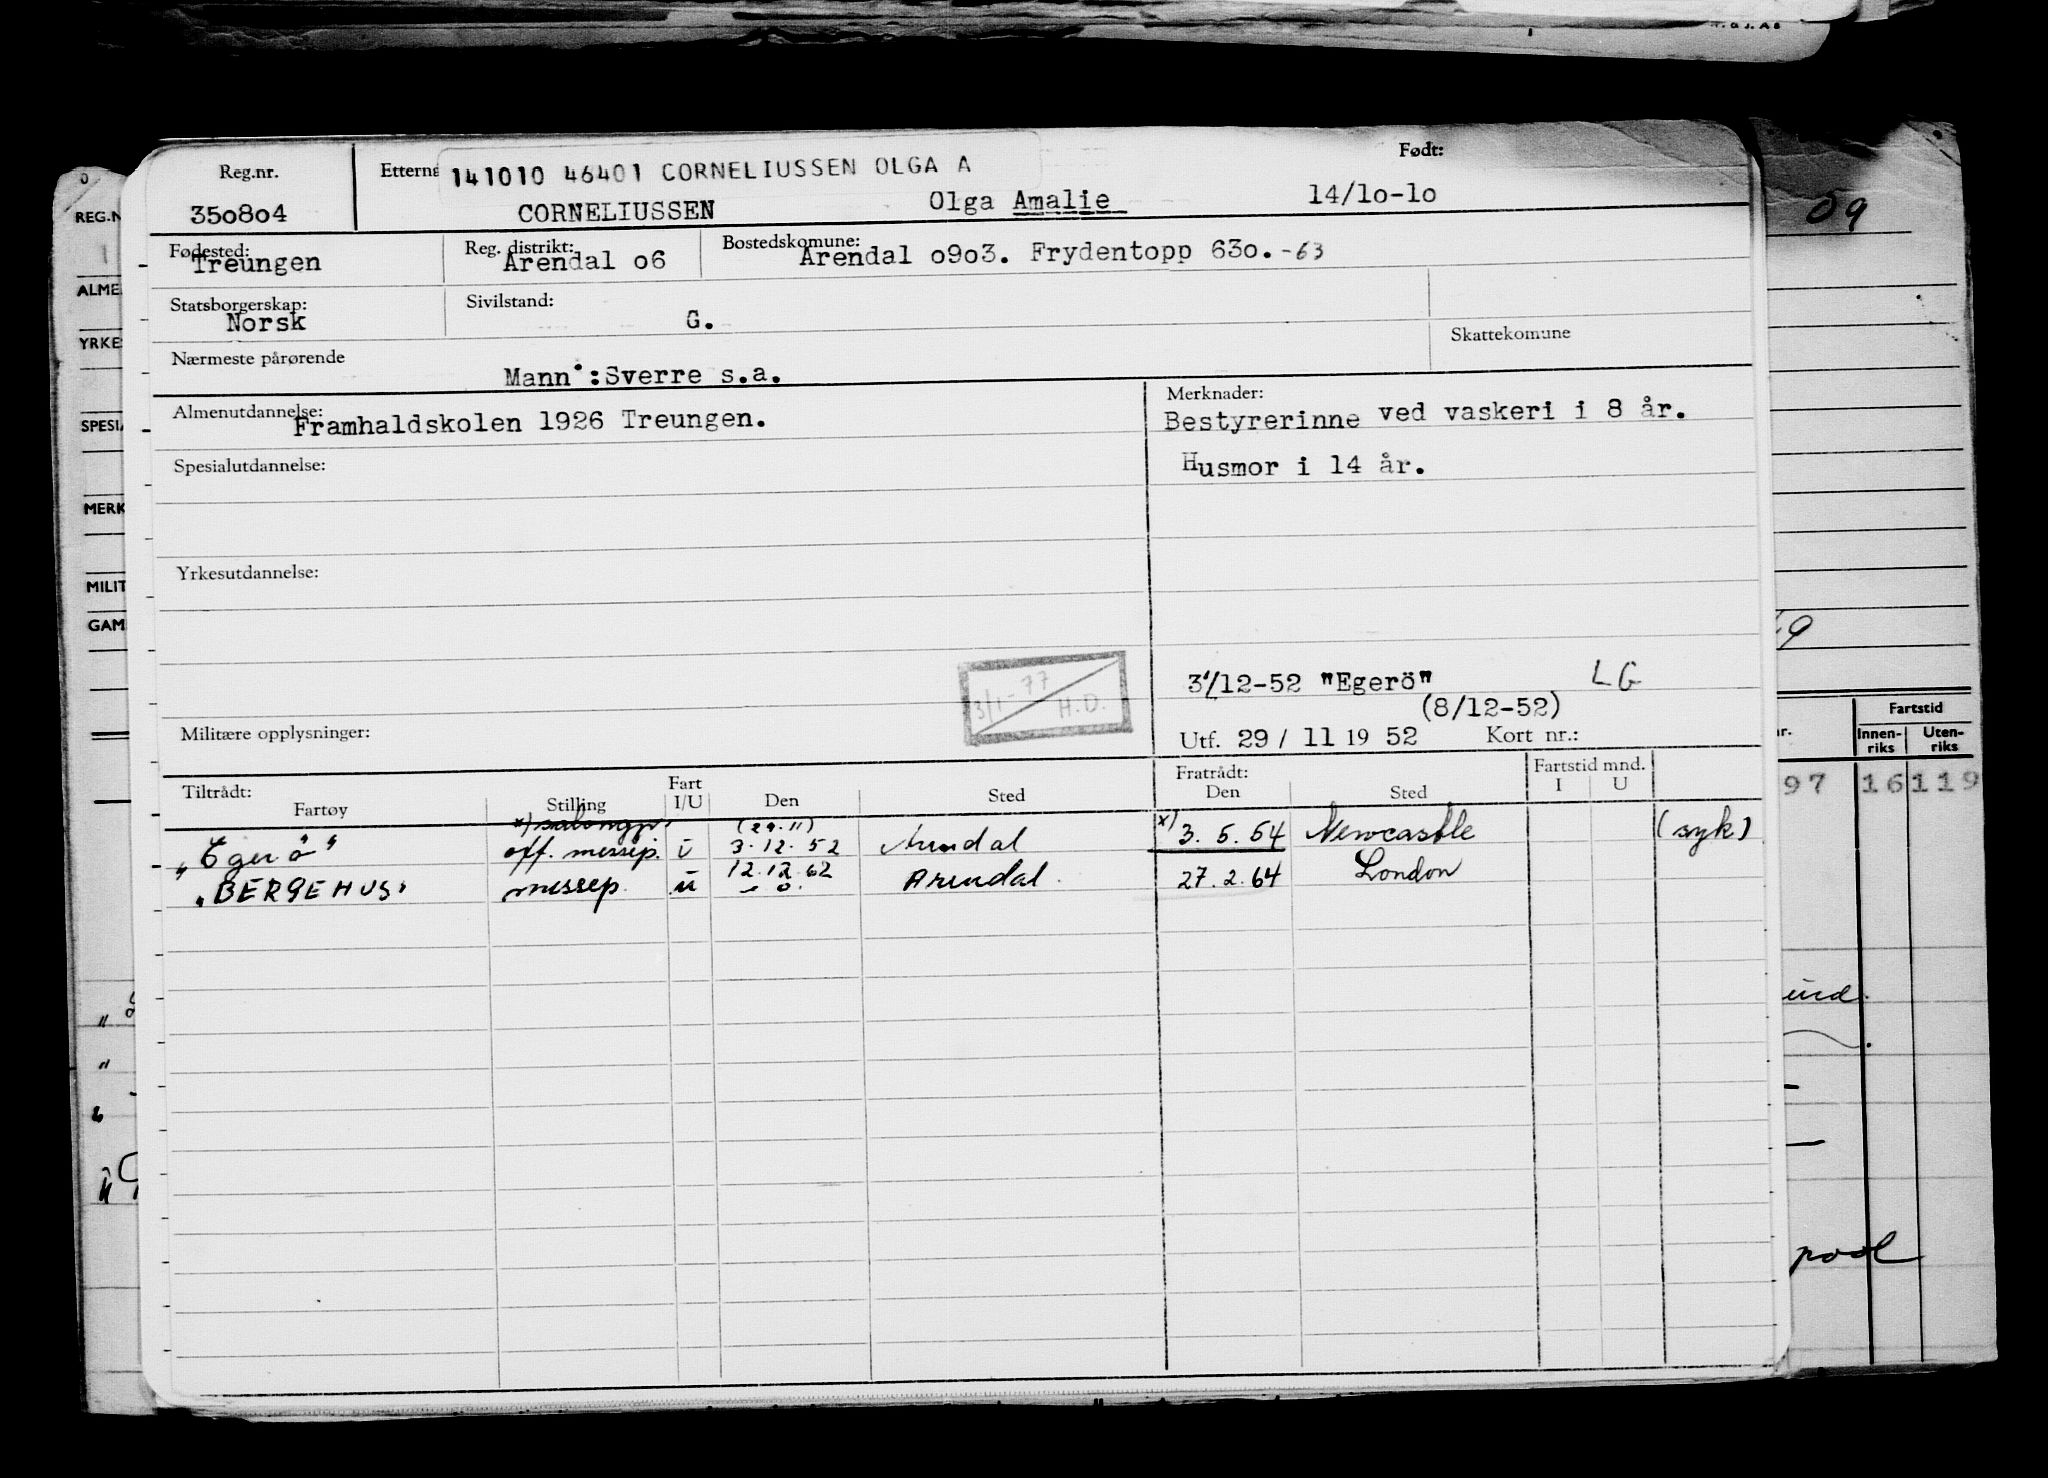 Reg.nr.
350804
Etterna
141010 46401 CORNELIUSSEN OLGA A
CORNELIUSSEN Olga Amalie
Født:
14/10-10
Fødested:
Treungen
Reg. distrikt:
Arendal 06
Bostedskomune:
Arendal 0903. Frydentopp 630. -63
Statsborgerskap:
Norsk
Sivilstand:
G.
Skattekomune
Nærmeste pårørende
Mann :Sverre s.a.
Almenutdannelse:
Framhaldskolen 1926 Treungen.
Merknader:
Bestyrerinne ved vaskeri i 8 år.
Husmor i 14 år.
Spesialutdannelse:
Yrkesutdannelse:
3/1-77
H.D.
3/12-52 "Egerö" LG
(8/12-52)
Militære opplysninger:
Utf. 29 / 11 19 52 Kort nr.:
Tiltrådt:
Fartøy Stilling Fart I/U Den Sted
Fratrådt:
Den Sted
Fartstid mnd.
I U
x) salongp. (29.11)
"Egerö" off. messep. u 3.12.52 Arendal x) 3.5.54 Newcastle (syk)
12.12.62
"BERGEHUS" messep. u Arendal 27.2.64 London
REG.N
ALME
YRKE
SPESIA
MERK
MILIT
GAM
09
Fartstid
Innen-
riks
Uten-
riks
97 16 119
pool